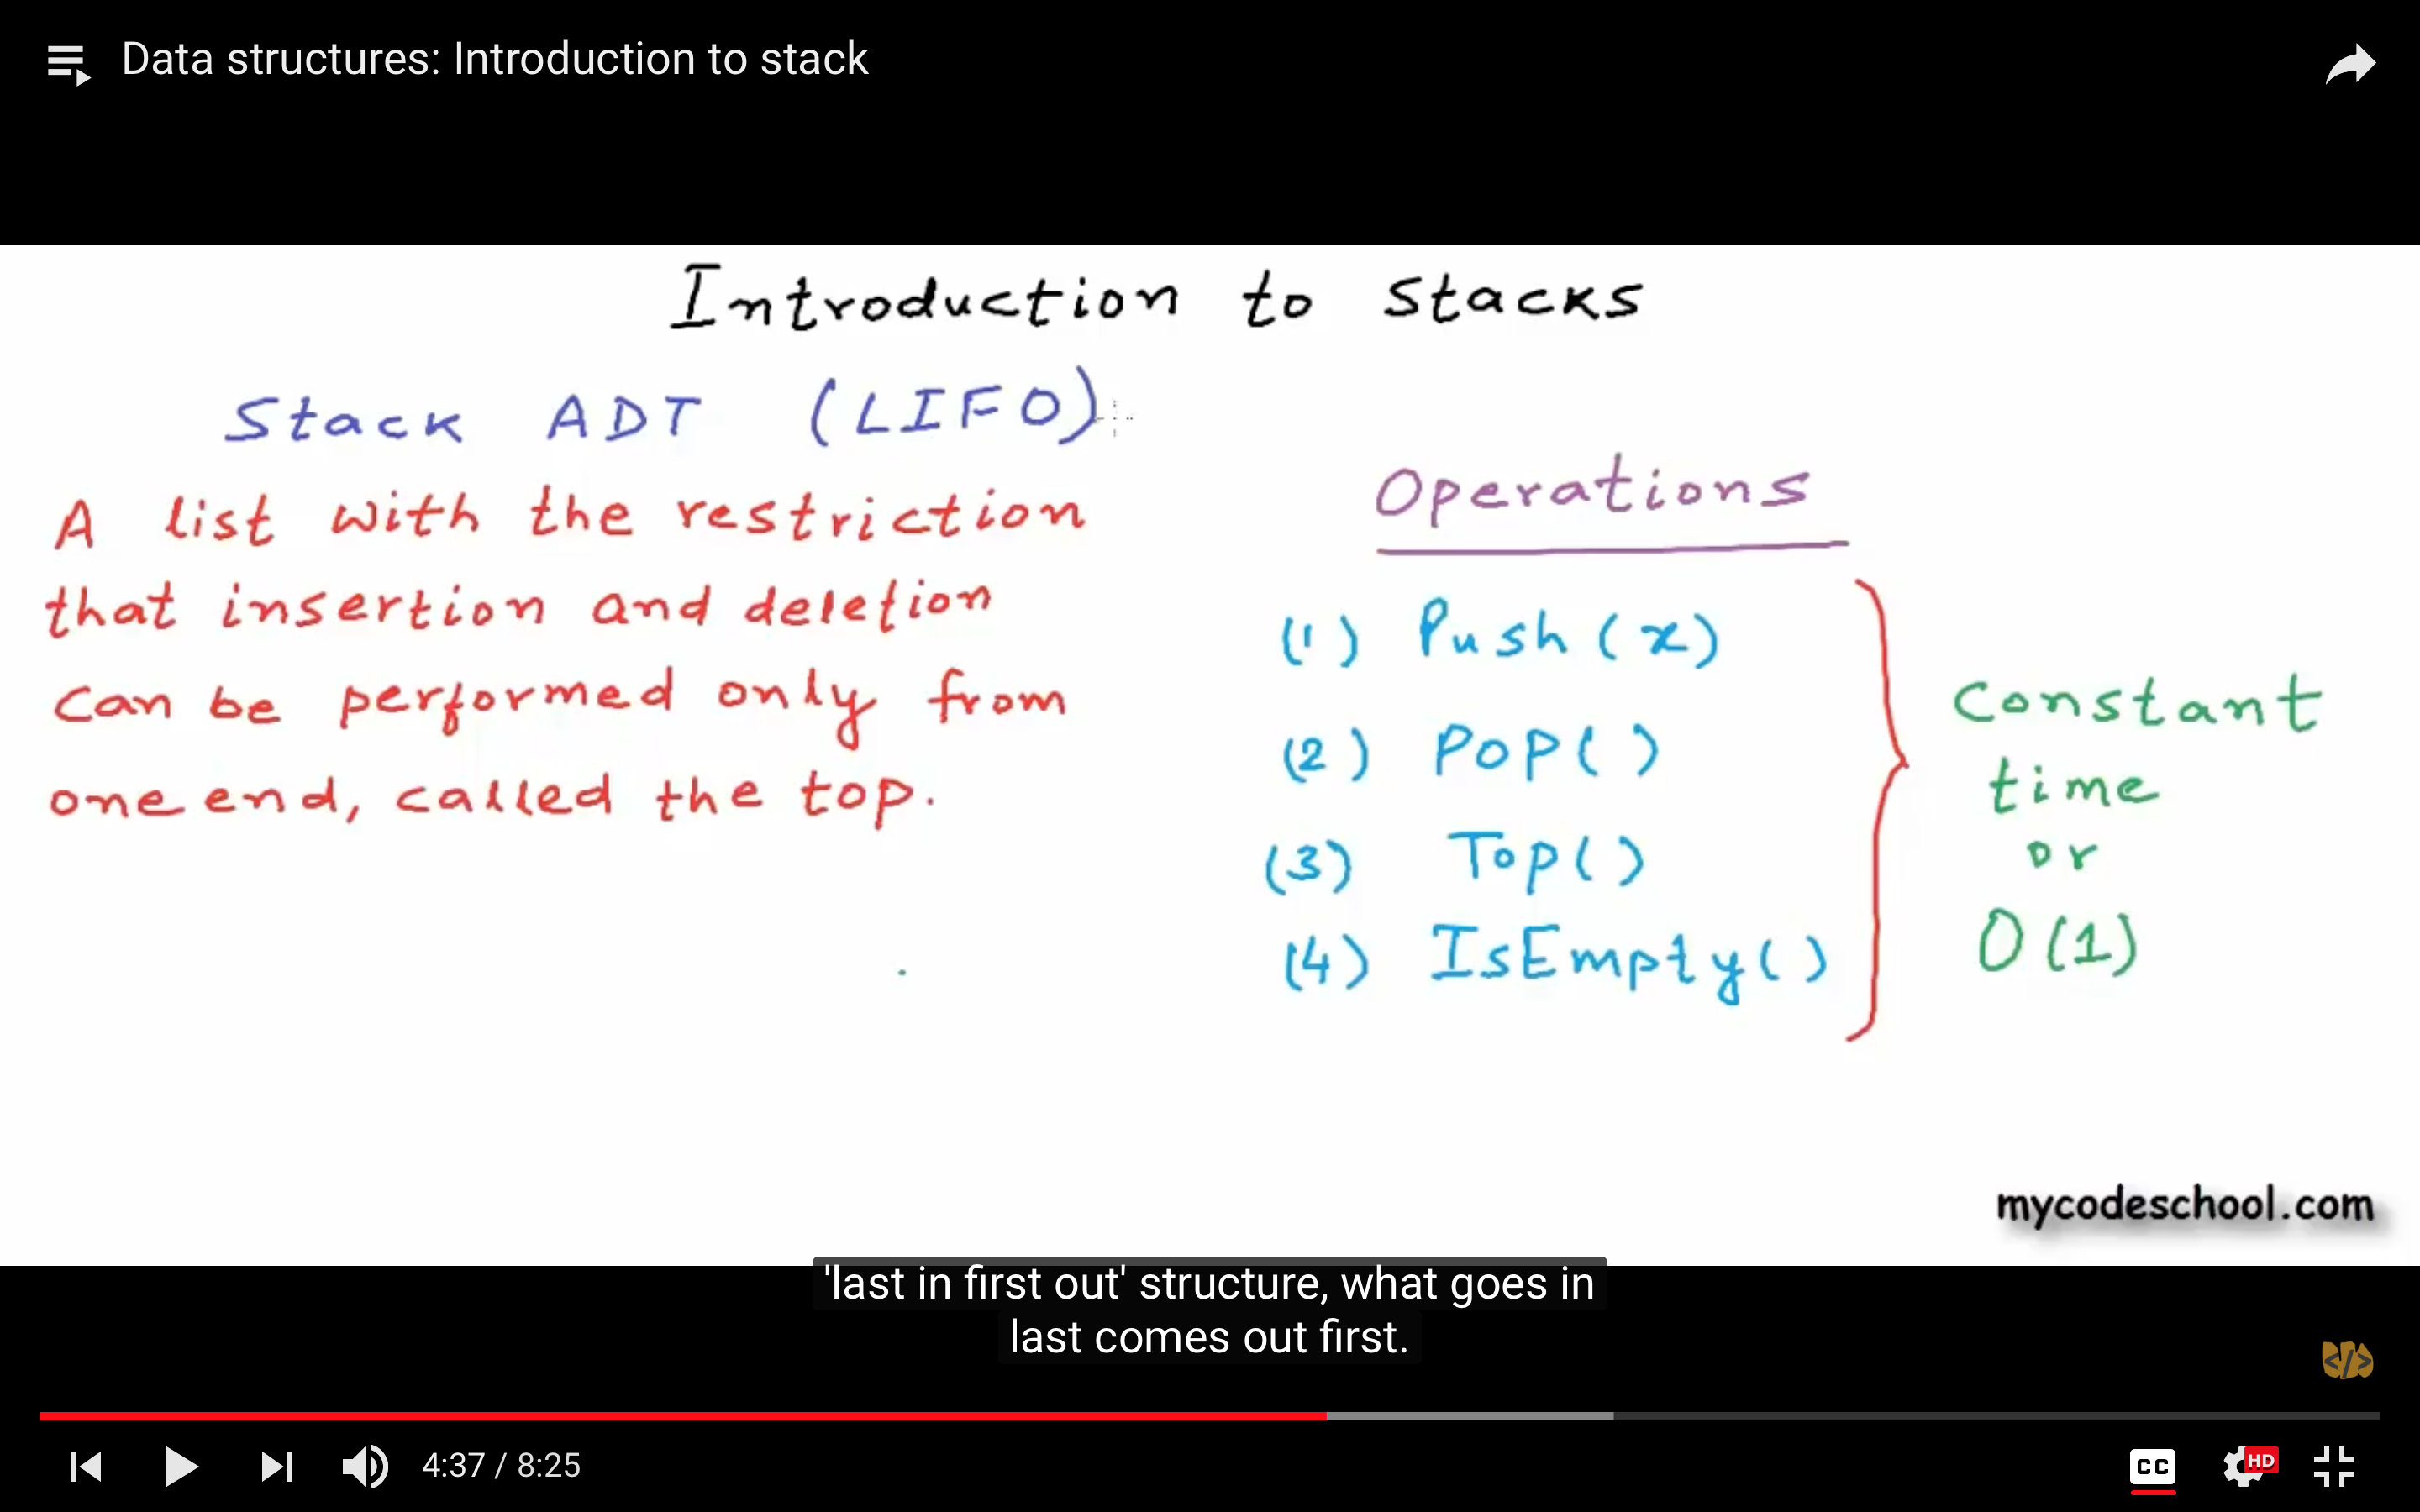 Data structures: Introduction to stack
Introduction to stacks
Stack ADT (LIFO)
A list with the restriction
that insertion and deletion
can be performed only from
one end, called the top.
Operations
(1) Push(x)
(2) Pop()
(3) Top()
(4) IsEmpty()
Constant
time
or
O(1)
mycodeschool.com
'last in first out' structure, what goes in
last comes out first.
</>
4:37 / 8:25
CC
HD